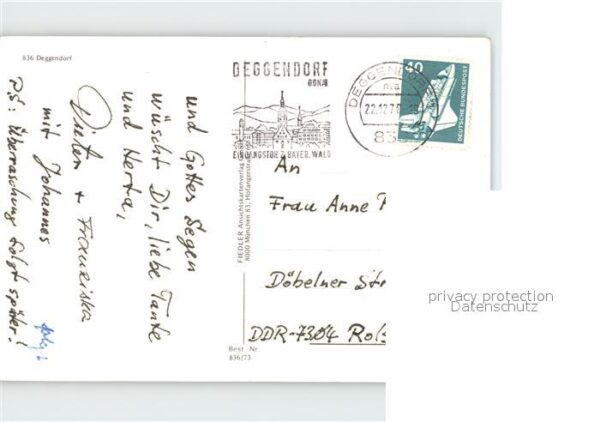 836 Deggendorf
und Gottes Segen
wünscht Dir, liebe Tante
und Herta,
Dieter + Franziska
mit Johannes
PS: Überraschung folgt später!
DEGGENDORF
DONAU
EINGANGSTOR Z. BAYER. WALD
DEGGENDORF
22.12.7
83
40
DEUTSCHE BUNDESPOST
FIEDLER Ansichtskartenverlag
8000 München 83, Hofangerstraße
Best Nr
836/73
An
Frau Anne
Döbelner Str
DDR-7304 Roß
privacy protection
Datenschutz